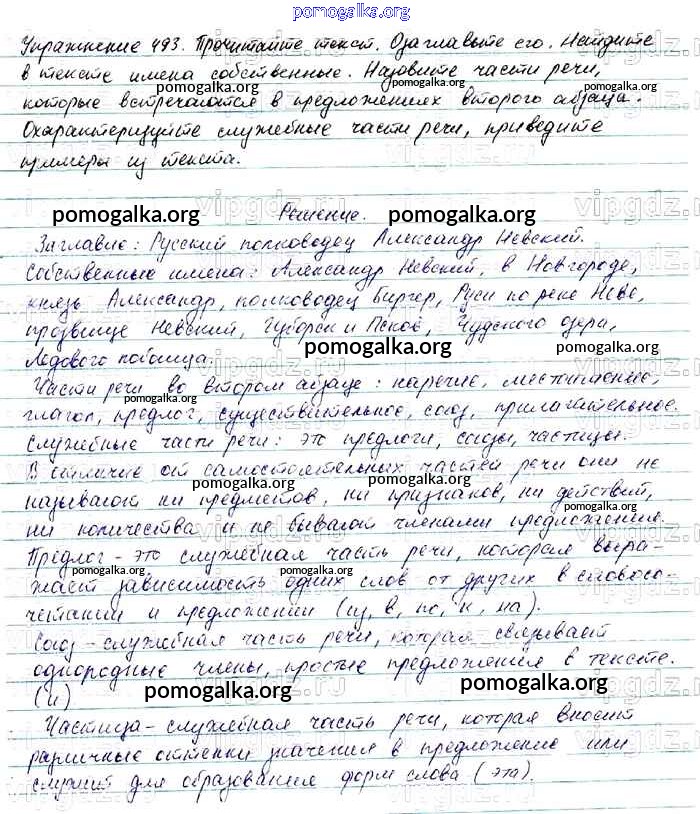 pomogalka.org
Упражнение 493. Прочитайте текст. Озаглавьте его. Найдите
в тексте имена собственные. Назовите части речи,
pomogalka.org pomogalka.org
которые встречаются в предложениях второго абзаца.
Охарактеризуйте служебные части речи, приведите
примеры из текста.
pomogalka.org Решение. pomogalka.org
Заглавие: Русский полководец Александр Невский.
Собственные имена: Александр Невский, в Новгороде,
pomogalka.org pomogalka.org
князь Александр, полководец Биргер, Руси по реке Неве,
прозвище Невский, Псков, Чудского озера,
Ледового побоища. pomogalka.org pomogalka.org
Части речи во втором абзаце: наречие, местоимение,
pomogalka.org pomogalka.org
глагол, предлог, существительное, союз, прилагательное.
Служебные части речи: это предлоги, союзы, частицы.
pomogalka.org
В отличие от самостоятельных частей речи они не
pomogalka.org pomogalka.org
называют ни предметов, ни признаков, ни действий,
ни количества и не бывают членами предложения.
Предлог - это служебная часть речи, которая выра-
pomogalka.org pomogalka.org pomogalka.org
жает зависимость одних слов от других в словосо-
четании и предложении (из, в, по, к, на).
Союз - служебная часть речи, которая связывает
pomogalka.org
однородные члены, простые предложения в тексте.
(и) pomogalka.org pomogalka.org
Частица - служебная часть речи, которая вносит
различные оттенки значения в предложение или
pomogalka.org pomogalka.org
служит для образования форм слова (эта).